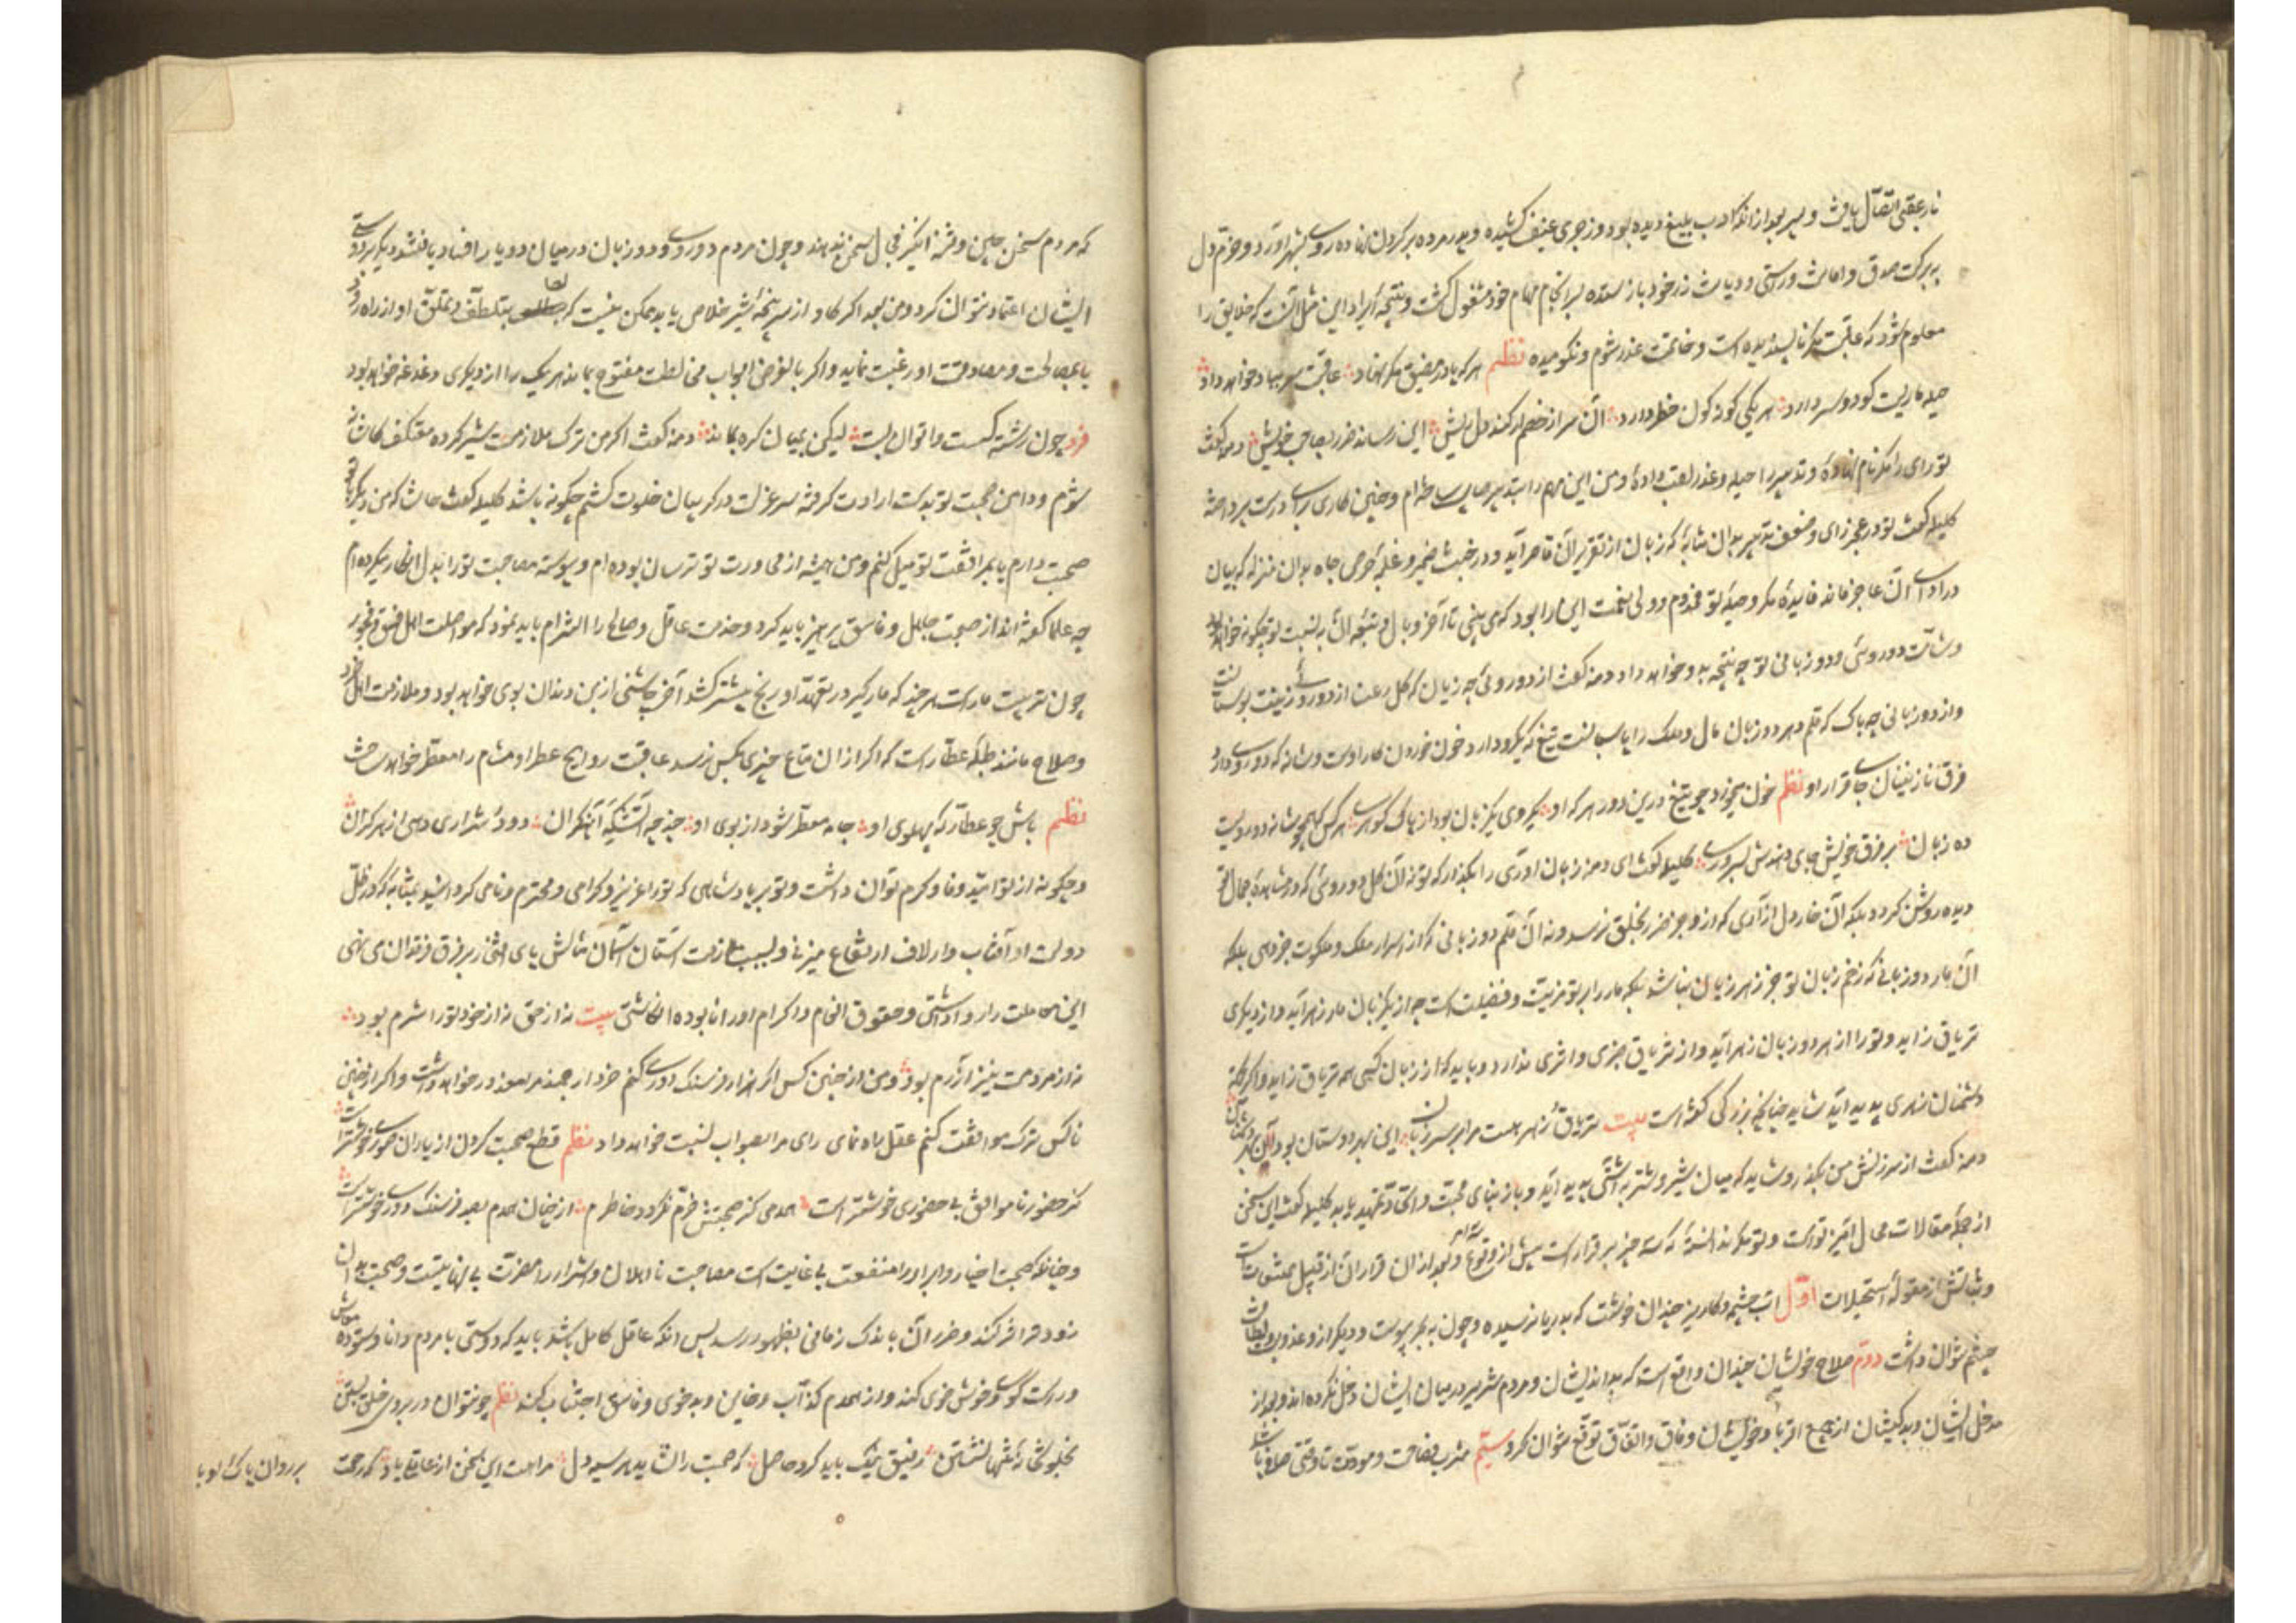 نار عقبی اتصال یافت و پسر بعد از انکه ادب بلیغ دیده بود و زجری عنیف کشیده و پدر مرده بر کردن نهاده روی بشهر آورد و خرم دل
به برکت صدق و امانت و راستی و دیانت زر خود باز ستده بسرانجام مهام خود مشغول کشت و نتیجه ایراد این مثل آنست که خلایق را
معلوم شود که عاقبت مکر ناپسندیده است و خاتمت غدر شوم و نکوهیده نظم هر که پا در مضیق مکر نهاد عاقبت سر بباد خواهد داد
حیله ماریست کو دو سر دارد هر یکی کونه کون خطر دارد آن سر از خصم ار کند دل ریش این رساند ضرر بصاحب خویش دمنه کفت
تو رای را مکر نام نهادۀ و تدبیر را حیله و غدر لقب دادۀ و من این مهم را بتدبیر صایب ساخته ام و چنین کاری برای درست پرداخته
کلیله کفت تو در عجز رای و ضعف تدبیر بدان مثابۀ که زبان از تقریر آن قاصر آید و در خبث ضمیر و غلبۀ حرص جاه بدان منزله که بیان
در ادای آن عاجز ماند فایدۀ مکر و حیلۀ تو مخدوم و ولی نعمت را این بود که می بینی تا آخر وبال و تبعۀ آن به نسبت تو چکونه خواهد بود
و شآمت دوروئی و دو زبانی تو چه نتیجه بدو خواهد داد دمنه کفت از دوروئی چه زیان که کل رعنا از دوروئی زینت بوستان است
و از دو زبانی چه باک که قلم دبیر دو زبان مال و ملک را پاسبانست تیغ که یکرو دارد خون خوردن کار اوست و شانه که دوروی دارد
فرق نازنینان جای قرار او نظم خون میخورد چو تیغ درین دور هر که او یکروی یکزبان بود از پاک کوهری هر کس که همچو شانه دوروست
ده زبان بر فرق خویش جای دهندش بسروری کلیله کفت ای دمنه زبان آوری را بکذار که تو نه آن کل دوروئی که در مشاهدۀ جمال تو
دیده روشن کردد بلکه آن خار دل آزاری که از تو جز ضرر بخلق نرسد و نه آن قلم دو زبانی که از اسرار ملک و ملکوت خبر دهی بلکه
آن مار دو زبانی که زخم زبان تو جز زهر زیان نباشد بلکه مار را بر تو مزیت و فضیلت است چه از یکزبان مار زهر آید و از دیکری
تریاق زاید و تو را از هر دو زبان زهر آید و از تریاق چیزی و اثری ندارد و باید که از زبان کسی همه تریاق زاید و اکر از برای
دشمنان زهری پدید آید شاید چنانچه بزرکی کفته است بیت تریاق و زهر هست مرا بر سر زبان این بهر دوستان بود و آن بهر دشمنان
دمنه کفت از سرزنش من بکذر و شاید که میان شیر و شتربه آشتی پدید آید و باز بنای محبت و اتحاد تمهید یابد کلیله کفت این سخن
از جملۀ مقالات محال آمیز توست و تو مکر ندانستۀ که سه چیز برقرارست پیش از وقوع سه امر و بعد از آن قرار آن از قبیل ممتنعات
و ثباتش از مقولۀ مستحیلات اول آب چشمه و کاریز چندان خوشست که بدریا نرسیده و چون به بحر پیوست و دیکر از و عذوبت و لطافت
چشم نتوان داشت دوم صلاح خویشان چندان واقع است که بداندیشان و مردم شریر در میان ایشان دخل نکرده اند و بعد از
مدخل ایشان و بدکیشان از جمع اقربا و خویشان وفاق و اتفاق توقع نتوان کرد سیم مشرب مصاحبت و مودت تا وقتی صاف باشد
که مردم سخن چین و فتنه انکیز مجال سخن ندهند و چون مردم دوروی و دو زبان در میان دو یار افتاد یا نقش شد دیکر بر دوستی
ایشان اعتماد نتوان کرد و من بعد اکر کاو از سرپنجۀ شیر خلاص یابد ممکن نیست که بتلطف و تملق او از راه رود
یا بمصالحت و مصادقت او رغبت نماید و اکر بالفرض ابواب مخالطت مفتوح بماند هر یک را از دیکری دغدغه خواهد بود
فرد چون رشته کسست وا توان بست لیکن بمیان کره بماند دمنه کفت اکر من ترک ملازمت شیر کرده معتکف کاشانه
شوم و دامن صحبت تو بدست ارادت کرفته سر عزلت در کریبان خلوت کشم چکونه باشد کلیله کفت حاشا که من دیکر با تو
صحبت دارم یا بمرافقت تو میل کنم و من همیشه از مجاورت تو ترسان بوده ام و پیوسته مصاحبت تو را بدل انکار میکرده ام
چه علما کفته اند از صحبت جاهل و فاسق پرهیز باید کرد و خدمت عاقل و صالح را التزام باید نمود که مواصلت اهل فسق و فجور
چون تربیت مارست هر چند که مارکیر در تعهد او رنج بیشتر کشد آخر چاشنی از بن دندان بوی خواهد بود و ملازمت اهل خرد
و صلاح مانند طبلۀ عطارست که اکر از ان متاع چیزی بکس نرسد عاقبت روایح عطر او مشام را معطر خواهد ساخت
نظم باش چو عطار که پهلوی او جامه معطر شود از بوی او چند چو آتشکدۀ آهنکران دود و شراری دهی از هر کران
و چکونه از تو امید وفا و کرم توان داشت و تو بر پادشاهی که تو را عزیز و کرامی و محترم و نامی کردانید بمثابه که در ظل
دولت او آفتاب وار لاف ارتفاع میزنی و بسبب ملازمت آستان آسمان مثالش پای افتخار بر فرق فرقدان می نهی
این معاملت را روا داشتی و حقوق انعام و اکرام او را نابوده انکاشتی بیت نه از حق نه از خود تو را شرم بود
نه از مردمت نیز آزرم بود و من از چنین کس اکر هزار فرسنک دوری کنم خرد ارجمند مرا معذور خواهد داشت و اکر از چنین
ناکس ترک موافقت کنم عقل راه نمای رای مرا بصواب نسبت خواهد داد نظم قطع صحبت کردن از یاران صوری خوشتر است
کز حضور ناموافق بی حضوری خوشتر است همدمی کز صحبتش خرم نکردد خاطرم از چنان همدم بصد فرسنک دوری خوشتر است
و چنانکه صحبت اخیار و ابرار را منفعت بی غایت است مصاحبت نااهلان و اشرار را مضرت بی نهایتست و صحبت بدان
زود تر اثر کند و ضرر آن باندک زمانی بظهور رسد پس آنکه عاقل کامل باشد باید که دوستی با مردم دانا و ستوده معاش
و راست کوی و خوش خوی کند و از همدم کذاب و خاین و بدخوی و فاسق اجتناب کند نظم چو نتوان در بروی خلق بستن
بخلوتخانه تنها نشستن رفیق نیک باید کرد حاصل که صحبت را نشاید هر سیه دل مرا هست این سخن از عاقلی یاد که رحمت
بر روان پاک او باد